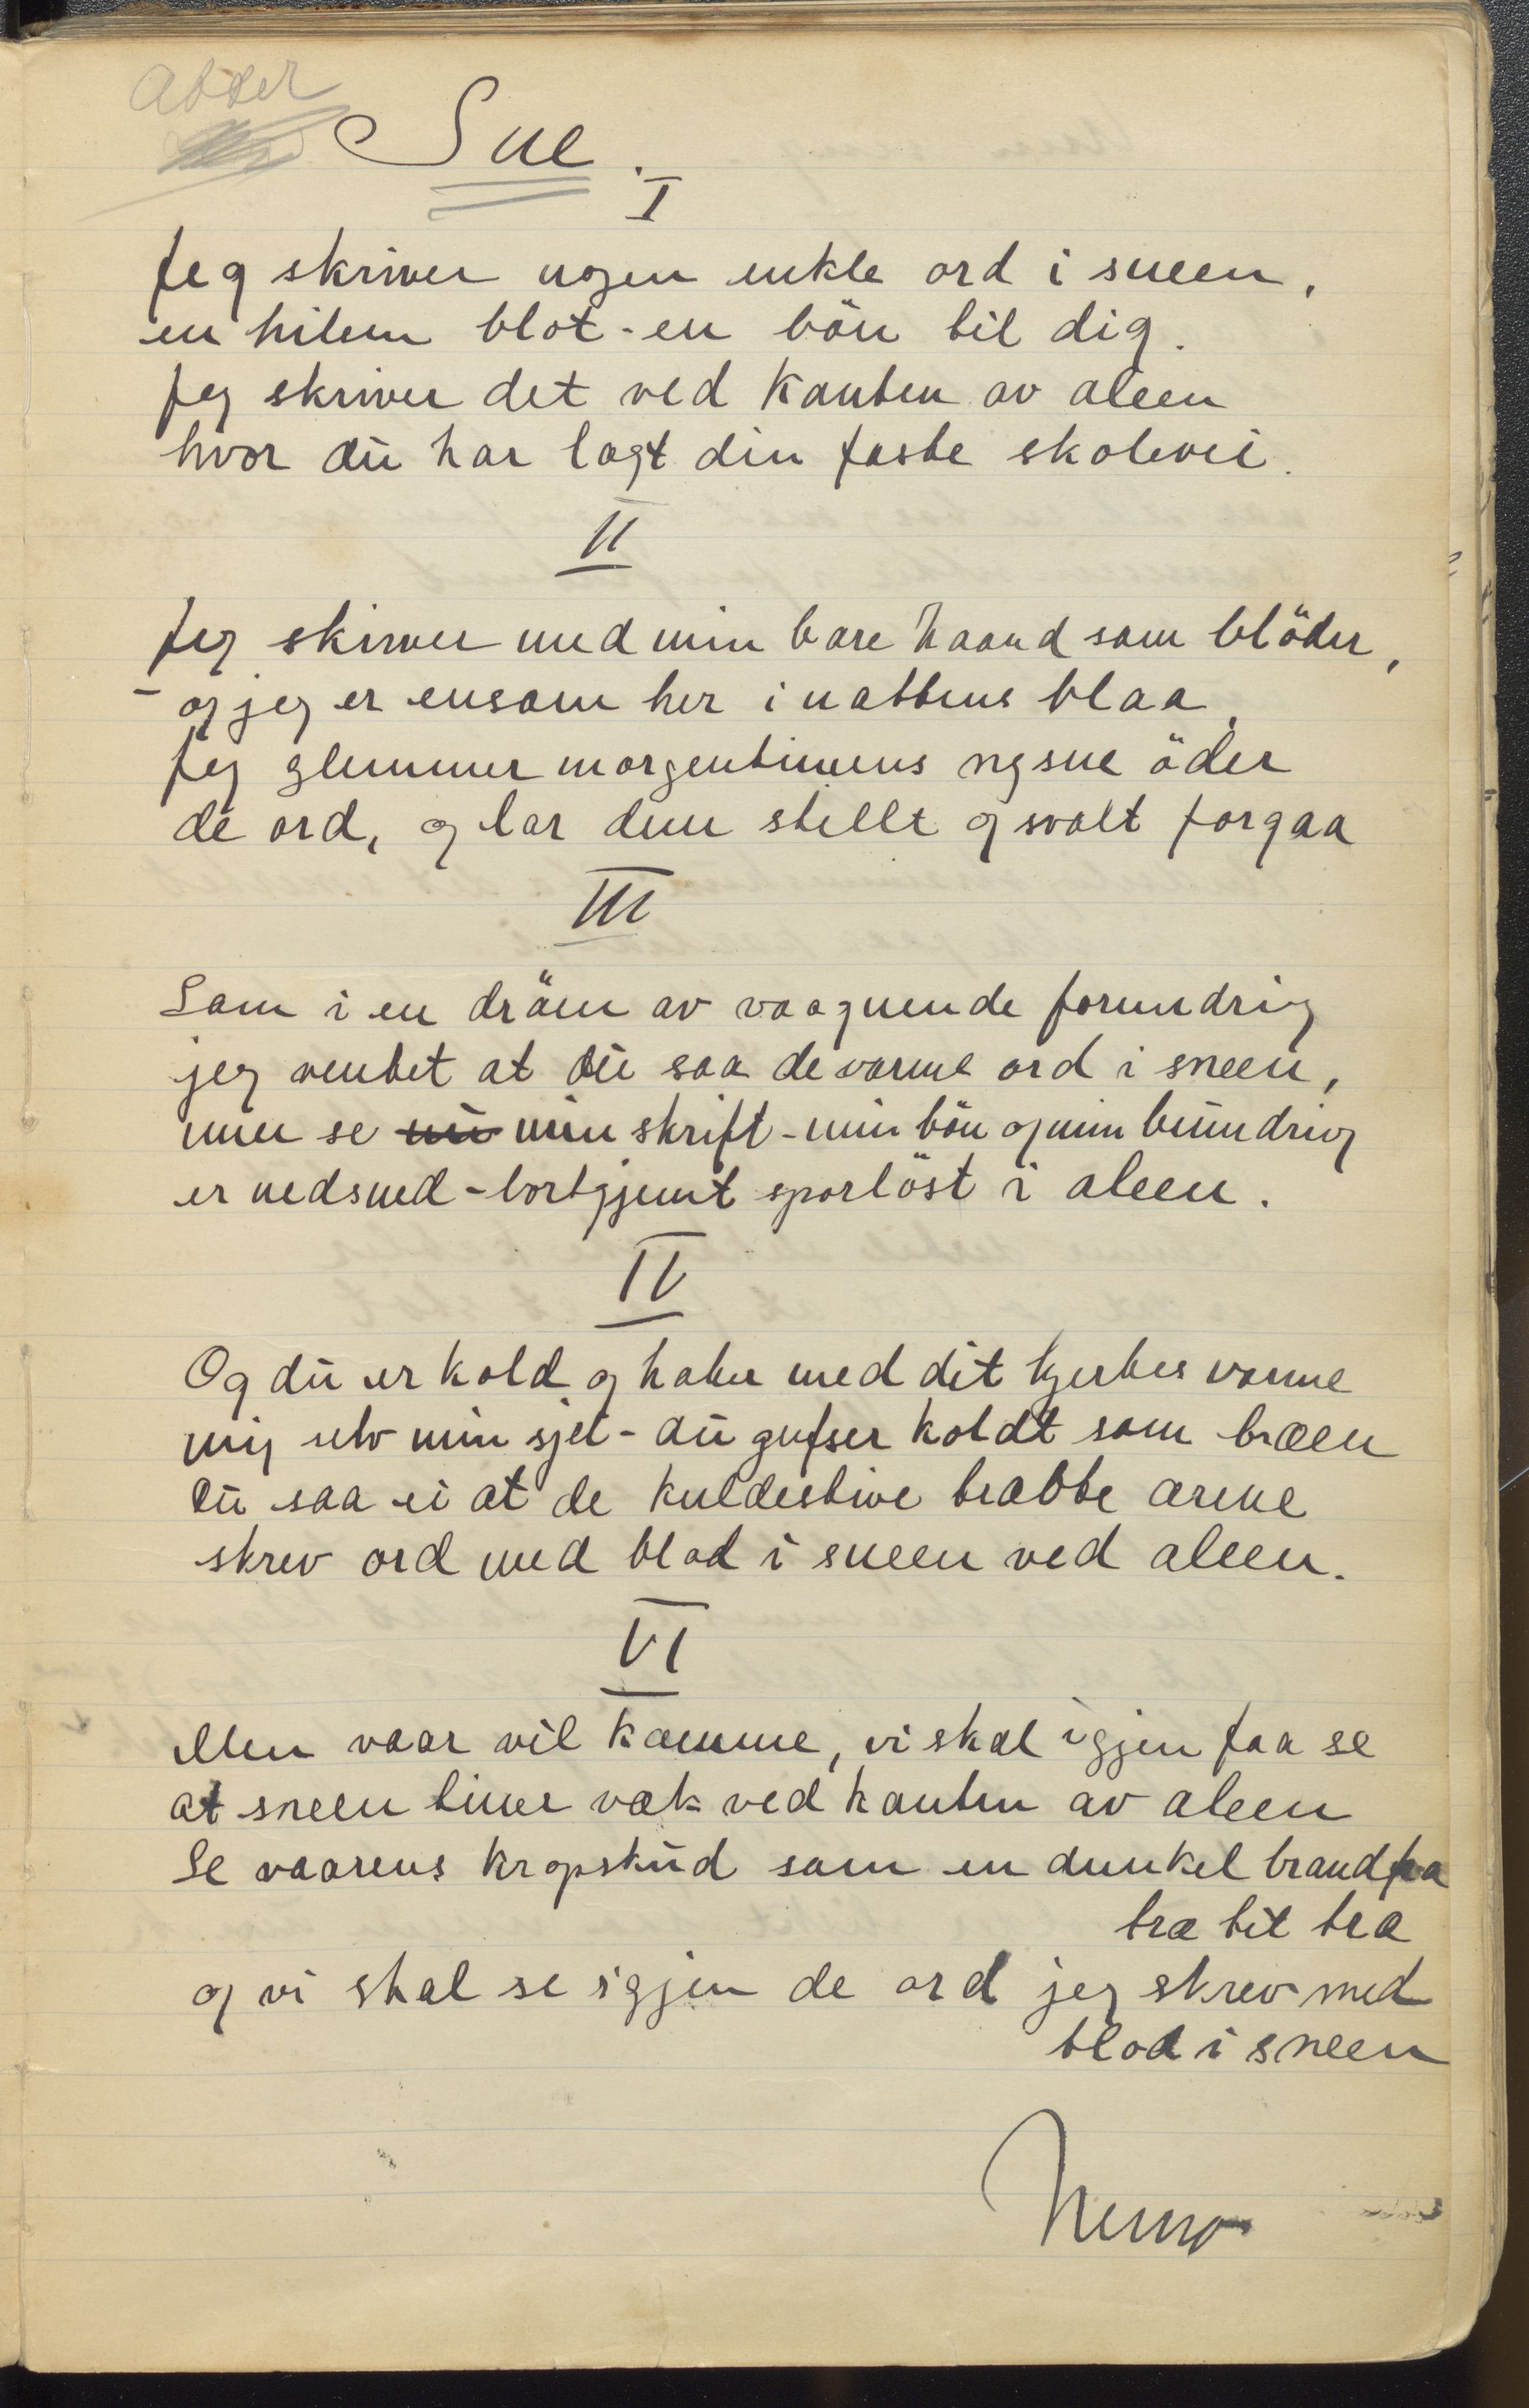 Atter
Sne.
I
Jeg skriver nogen enkle ord i sneen,
en hilsen blot - en bön til dig.
Jeg skriver det ved Kanten av aleen
hvor du har lagt din faste skolevei.
II
Jeg skirver med min bare haand som blöder,
- og jeg er ensom her i nattens blaa,
Jeg glemmer morgentimens nysne öder
de ord, og lar dem stillt og svalt forgaa
III
Som i en dröm av vaagnende forundring
jeg ventet at du saa de varme ord i sneen,
men se min skrift - min bön og min beundring
er nedsned - bortgjemt sporlöst i aleen.
IV
Og du er kold og hater med dit hjertes varme
mig selv min sjel - du gufser koldt som bræen
Du saa ei at de kuldestive trætte arme
skrev ord med blod i sneen ved aleen.
VI
Men vaar vil komme, vi skal igjen faa se
at sneen tiner væk ved kanten av aleen
Se vaarens kropskud som en dunkel brand fra
træ til træ
og vi skal se igjen de ord jeg skrev med
blod i sneen
Nemo